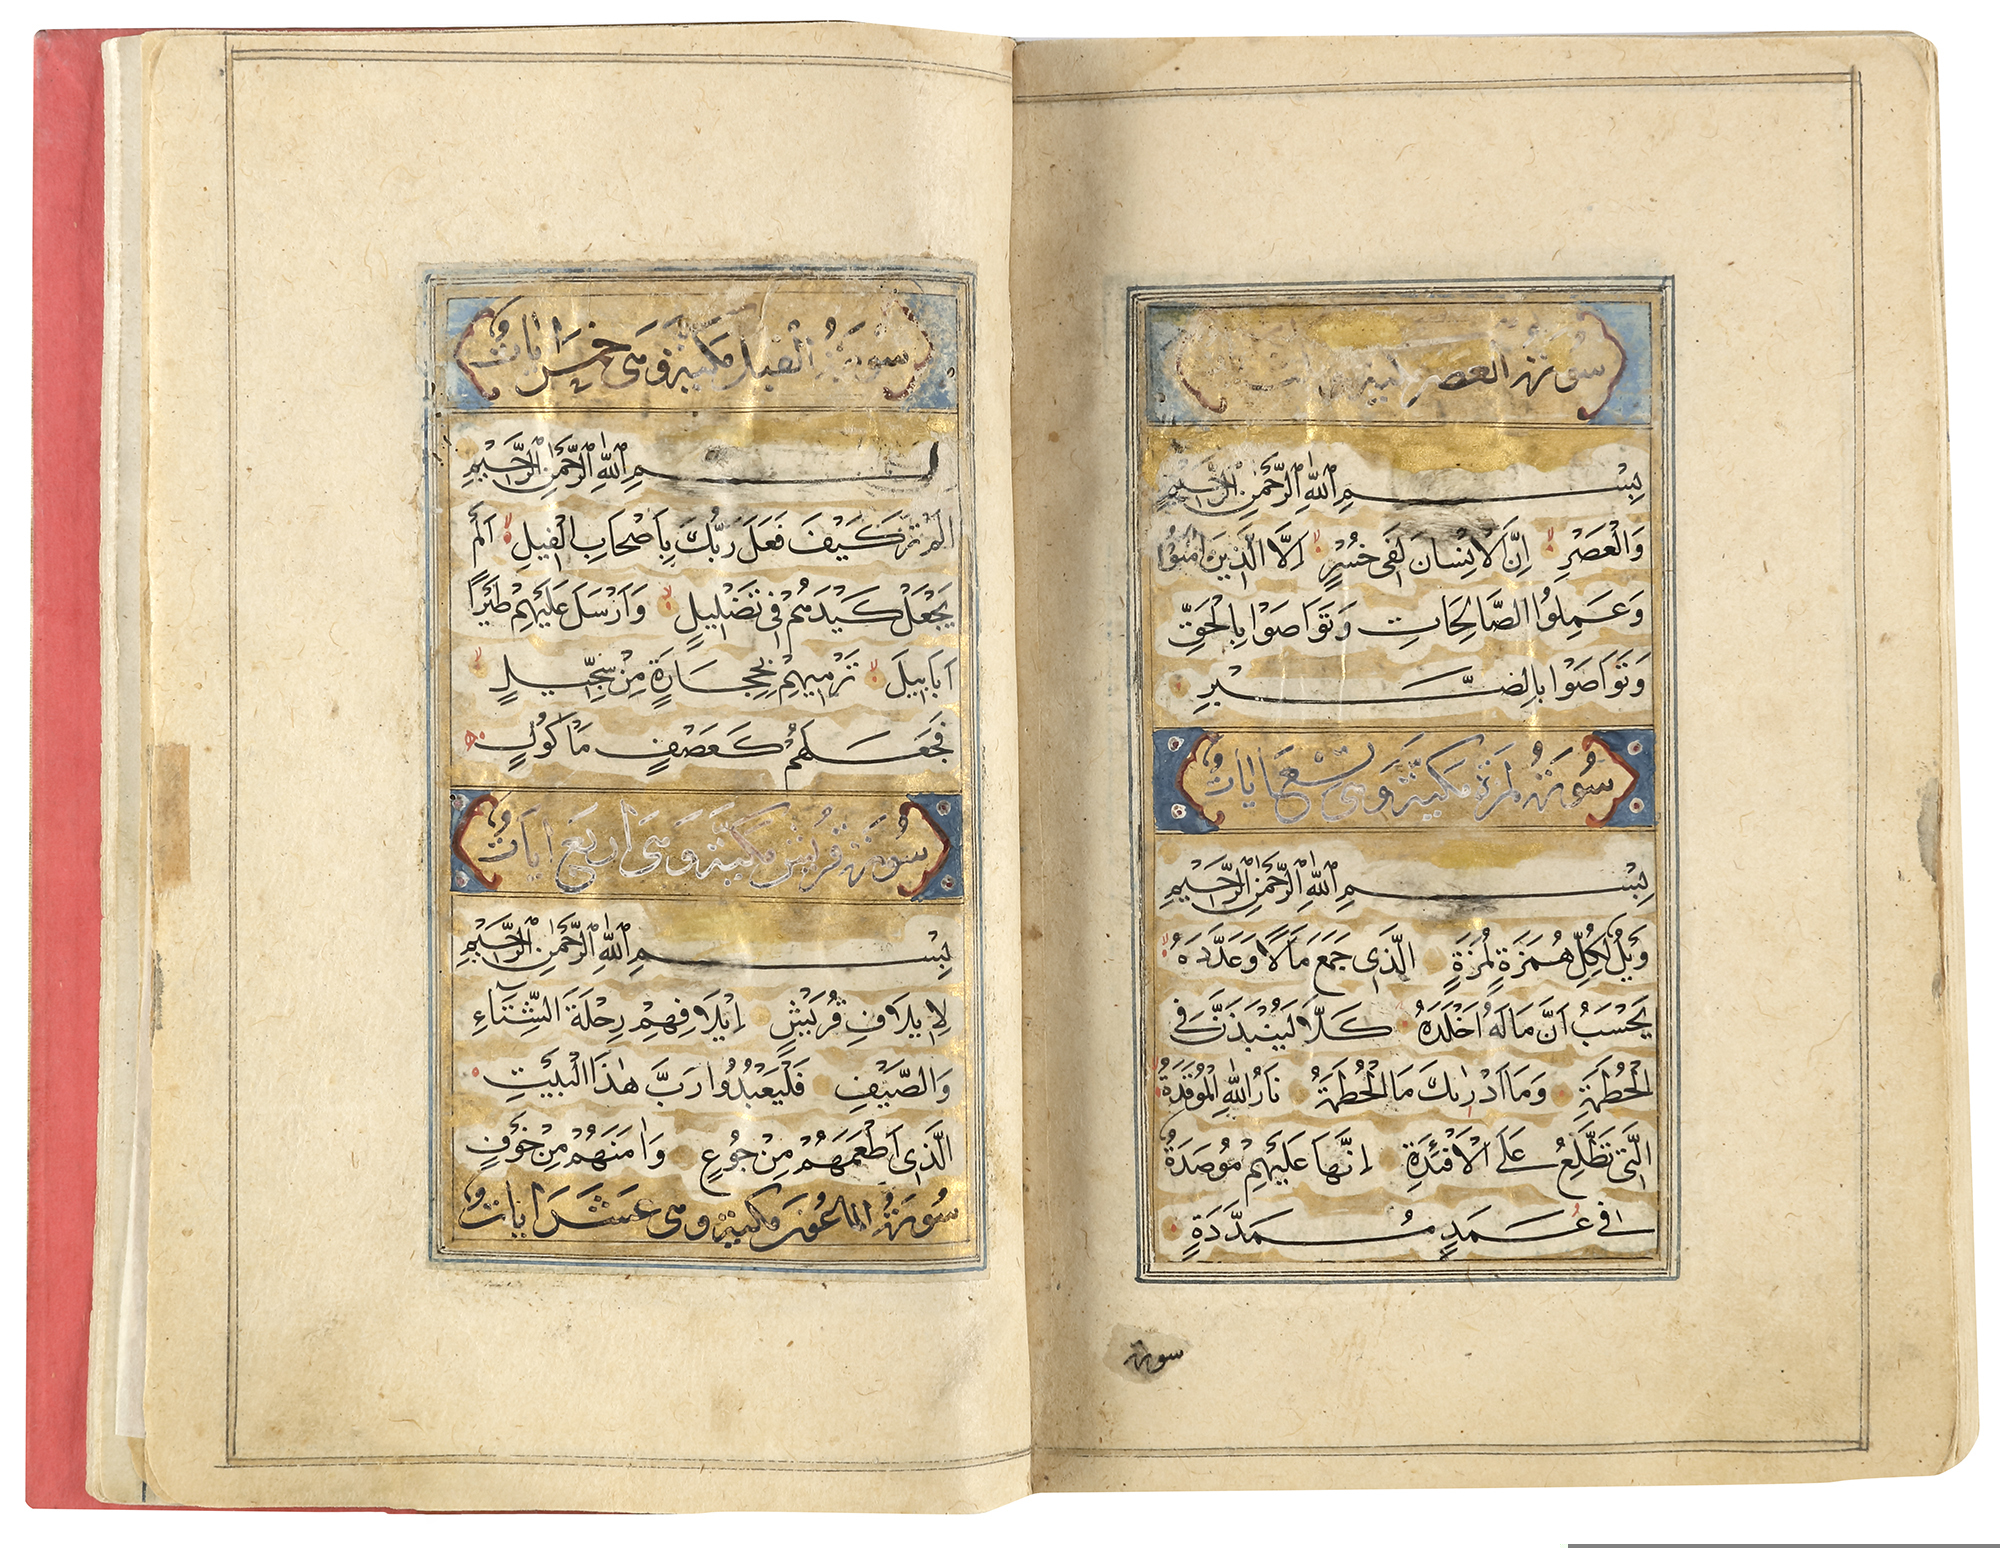 سورة العصر
بِسْمِ اللهِ الرَّحْمٰنِ الرَّحِيمِ
وَالْعَصْرِ اِنَّ الْاِنْسَانَ لَفٖى خُسْرٍ اِلَّا الَّذٖينَ اٰمَنُوا
وَعَمِلُوا الصَّالِحَاتِ وَتَوَاصَوْا بِالْحَقِّ
وَتَوَاصَوْا بِالصَّبْرِ
سُورَةُ لمزة مَكِيَّةٌ وَهِىَ تِسْعُ اٰيَاتٍ
بِسْمِ اللهِ الرَّحْمٰنِ الرَّحِيمِ
وَيْلٌ لِكُلِّ هُمَزَةٍ لُمَزَةٍ الَّذٖى جَمَعَ مَالًا وَعَدَّدَهُ
يَحْسَبُ اَنَّ مَالَهُ اَخْلَدَهُ كَلَّا لَيُنْبَذَنَّ فِى
الْحُطَمَةِ وَمَا اَدْرٰيكَ مَا الْحُطَمَةُ نَارُ اللهِ الْمُوقَدَةُ
الَّتٖى تَطَّلِعُ عَلَى الْاَفْئِدَةِ اِنَّهَا عَلَيْهِمْ مُوصَدَةٌ
فٖى عُمَدٍ مُمَدَّدَةٍ
سورة
سُورَةُ الْفيل مَكِيَّةٌ وَهِىَ خَمْسُ اٰيَاتٍ
بسْمِ اللهِ الرَّحْمٰنِ الرَّحِيمِ
اَلَمْ تَرَ كَيْفَ فَعَلَ رَبُّكَ بِاَصْحَابِ الْفٖيلِ اَلَمْ
يَجْعَلْ كَيْدَهُمْ فٖى تَضْلٖيلٍ وَاَرْسَلَ عَلَيْهِمْ طَيْرًا
اَبَابٖيلَ تَرْمٖيهِمْ بِحِجَارَةٍ مِنْ سِجّٖيلٍ
فَجَعَلَهُمْ كَعَصْفٍ مَأْكُولٍ
سُورَةُ قُرَيْش مَكِيَّةٌ وَهِىَ اَرْبَعُ اٰيَاتٍ
بِسْمِ اللهِ الرَّحْمٰنِ الرَّحِيمِ
لِاٖيلَافِ قُرَيْشٍ اٖيلَافِهِمْ رِحْلَةَ الشِّتَاءِ
وَالصَّيْفِ فَلْيَعْبُدُوا رَبَّ هٰذَا الْبَيْتِ
الَّذٖى اَطْعَمَهُمْ مِنْ جُوعٍ وَاٰمَنَهُمْ مِنْ خَوْفٍ
سُورَةُ الماعون مَكِيَّةٌ وَهِىَ عَشَرَ اٰيَاتٍ